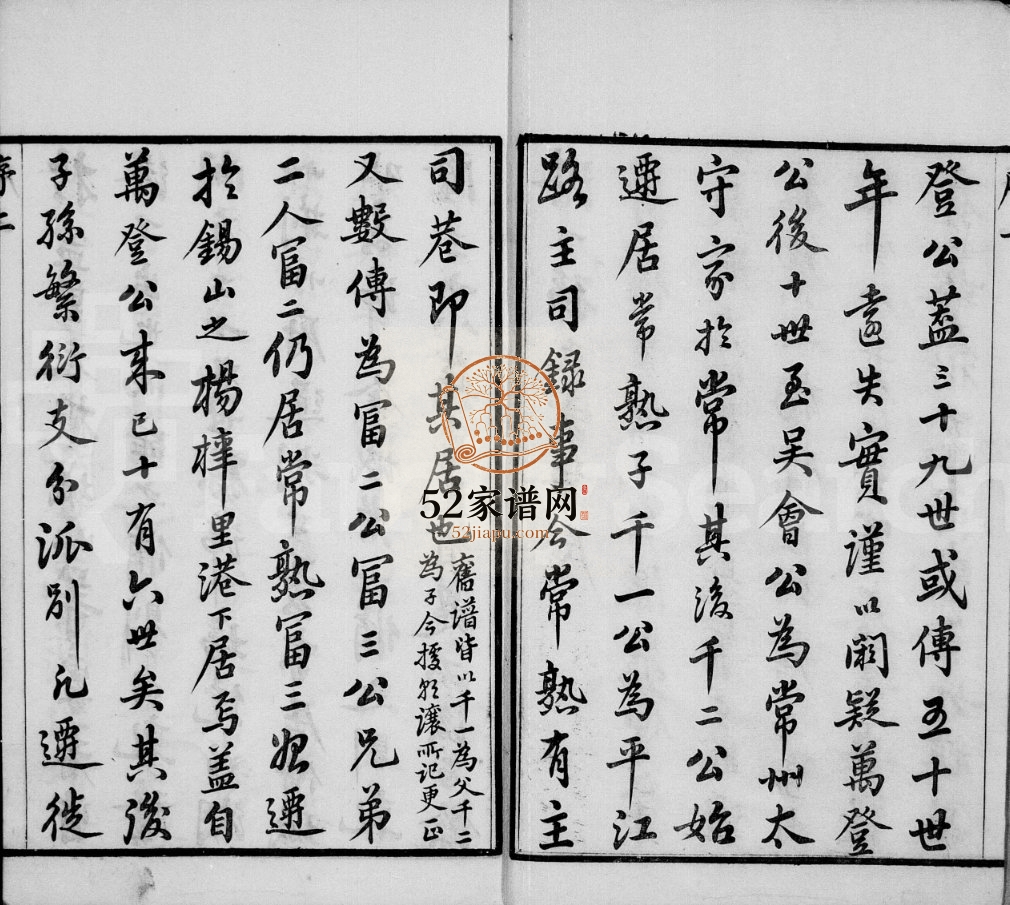 登公蓋三十九世或傳五十世
年遠失實謹以闕疑萬登
公後十世至吳會公為常州太
守家於常其後千二公始
遷居常熟子千一公為平江
路主司錄事今常熟有主
司巷即其居也舊譜皆以千一為父千二
為子今據 讓所記更正
又數傳為富二公富三公兄弟
二人富二仍居常熟富三始遷
於錫山之楊梓里港下居焉蓋自
萬登公來已十有六世矣其後
子孫繁衍支分派別凡遷徙
序二
52家谱网
52jiapu.com